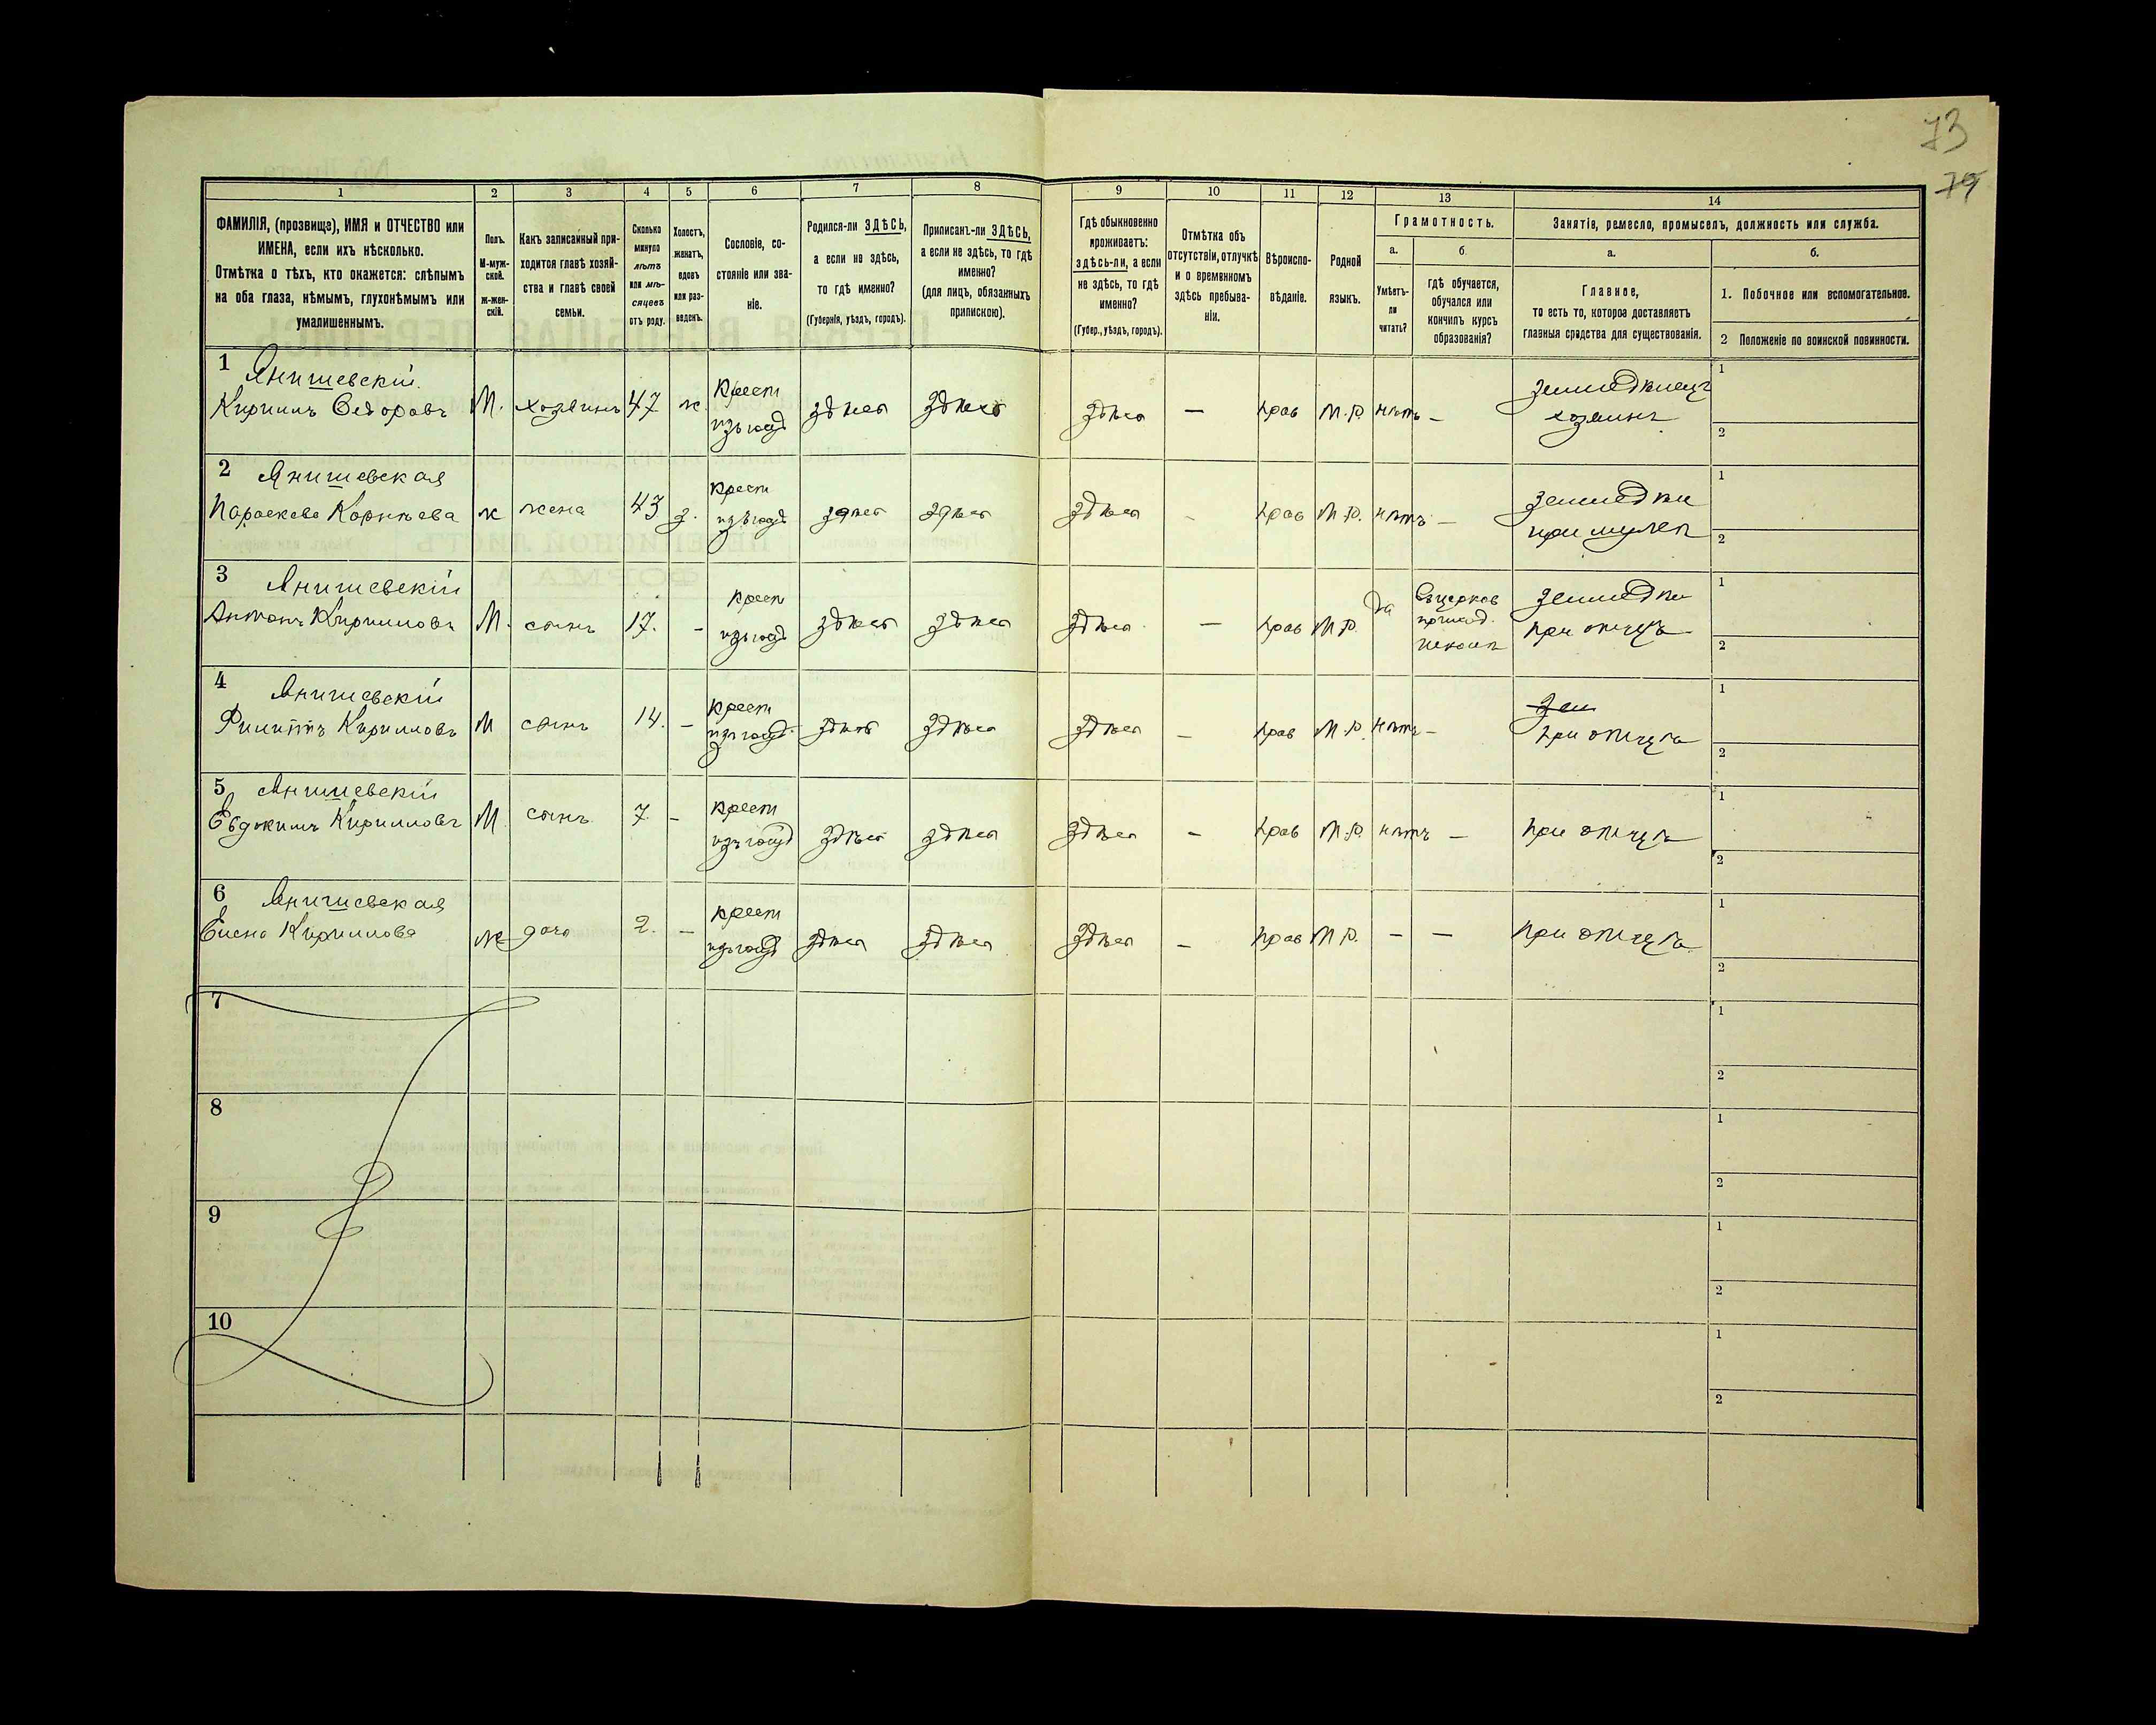 73
79
1 2 3 4 5 6 7 8 9 10 11 12 13 14
ФАМИЛІЯ, (прозвище), ИМЯ и ОТЧЕСТВО или
ИМЕНА, если ихъ нѣсколько.
Отмѣтка о тѣхъ, кто окажется: слѣпымъ
на оба глаза, нѣмымъ, глухонѣмымъ или
умалишеннымъ.
Полъ.
М-муж-
ской.
ж-жен-
скій.
Какъ записанный при-
ходится главѣ хозяй-
ства и главѣ своей
семьи.
Сколько
минуло
лѣтъ
или мѣ-
сяцевъ
отъ роду.
Холостъ,
женатъ,
вдовъ
или раз-
веденъ.
Сословіе, со-
стояніе или зва-
ніе.
Родился-ли ЗДѢСЬ,
а если не здѣсь,
то гдѣ именно?
(Губернія, уѣздъ, городъ).
Приписанъ-ли ЗДѢСЬ,
а если не здѣсь, то гдѣ
именно?
(для лицъ, обязанныхъ
припискою).
Гдѣ обыкновенно
проживаетъ:
здѣсь-ли, а если
не здѣсь, то гдѣ
именно?
(Губер., уѣздъ, городъ).
Отмѣтка объ
отсутствіи, отлучкѣ
и о временномъ
здѣсь пребыва-
ніи.
Вѣроиспо-
вѣданіе.
Родной
языкъ.
Грамотность.
а. б
Умѣетъ-
ли
читать?
гдѣ обучается,
обучался или
кончилъ курсъ
образованія?
Занятіе, ремесло, промыселъ, должность или служба.
а. б.
Главное,
то есть то, которое доставляетъ
главныя средства для существованія.
1. Побочное или вспомогательное.
2 Положеніе по воинской повинности.
1 Янишевскій Крест земледѣлецъ 1
Кириллъ Ѳедоровъ М. хозяинъ 47 ж. изъ госуд здѣсь здѣсь здѣсь — прав М.Р. нѣтъ — хозяинъ 2
2 Янишевская крест земледѣл 1
Параскева Корнѣева ж жена 43 з. изъ госуд здѣсь здѣсь здѣсь - прав М.Р. нѣтъ — при мужѣ 2
3 Янишевскій крест да Въ церков земледѣл 1
Антонъ Кирилловъ М. сынъ 17. - изъ госуд здѣсь здѣсь здѣсь — прав М.Р. приход. при отцѣ
школѣ 2
4 Янишевскій крест зем 1
Филиппъ Кирилловъ М сынъ 14. - изъ госуд здѣсь здѣсь здѣсь — прав М.Р. нѣтъ — при отцѣ 2
5 Янишевскій крест 1
Евдокимъ Кирилловъ М сынъ 7. - изъ госуд здѣсь здѣсь здѣсь - прав М.Р. нѣтъ — при отцѣ 2
6 Янишевская крест 1
Елена Кириллова ж дочь 2. - изъ госуд здѣсь здѣсь здѣсь - прав М.Р. — — при отцѣ 2
7 1
2
8 1
2
9 1
2
10 1
2